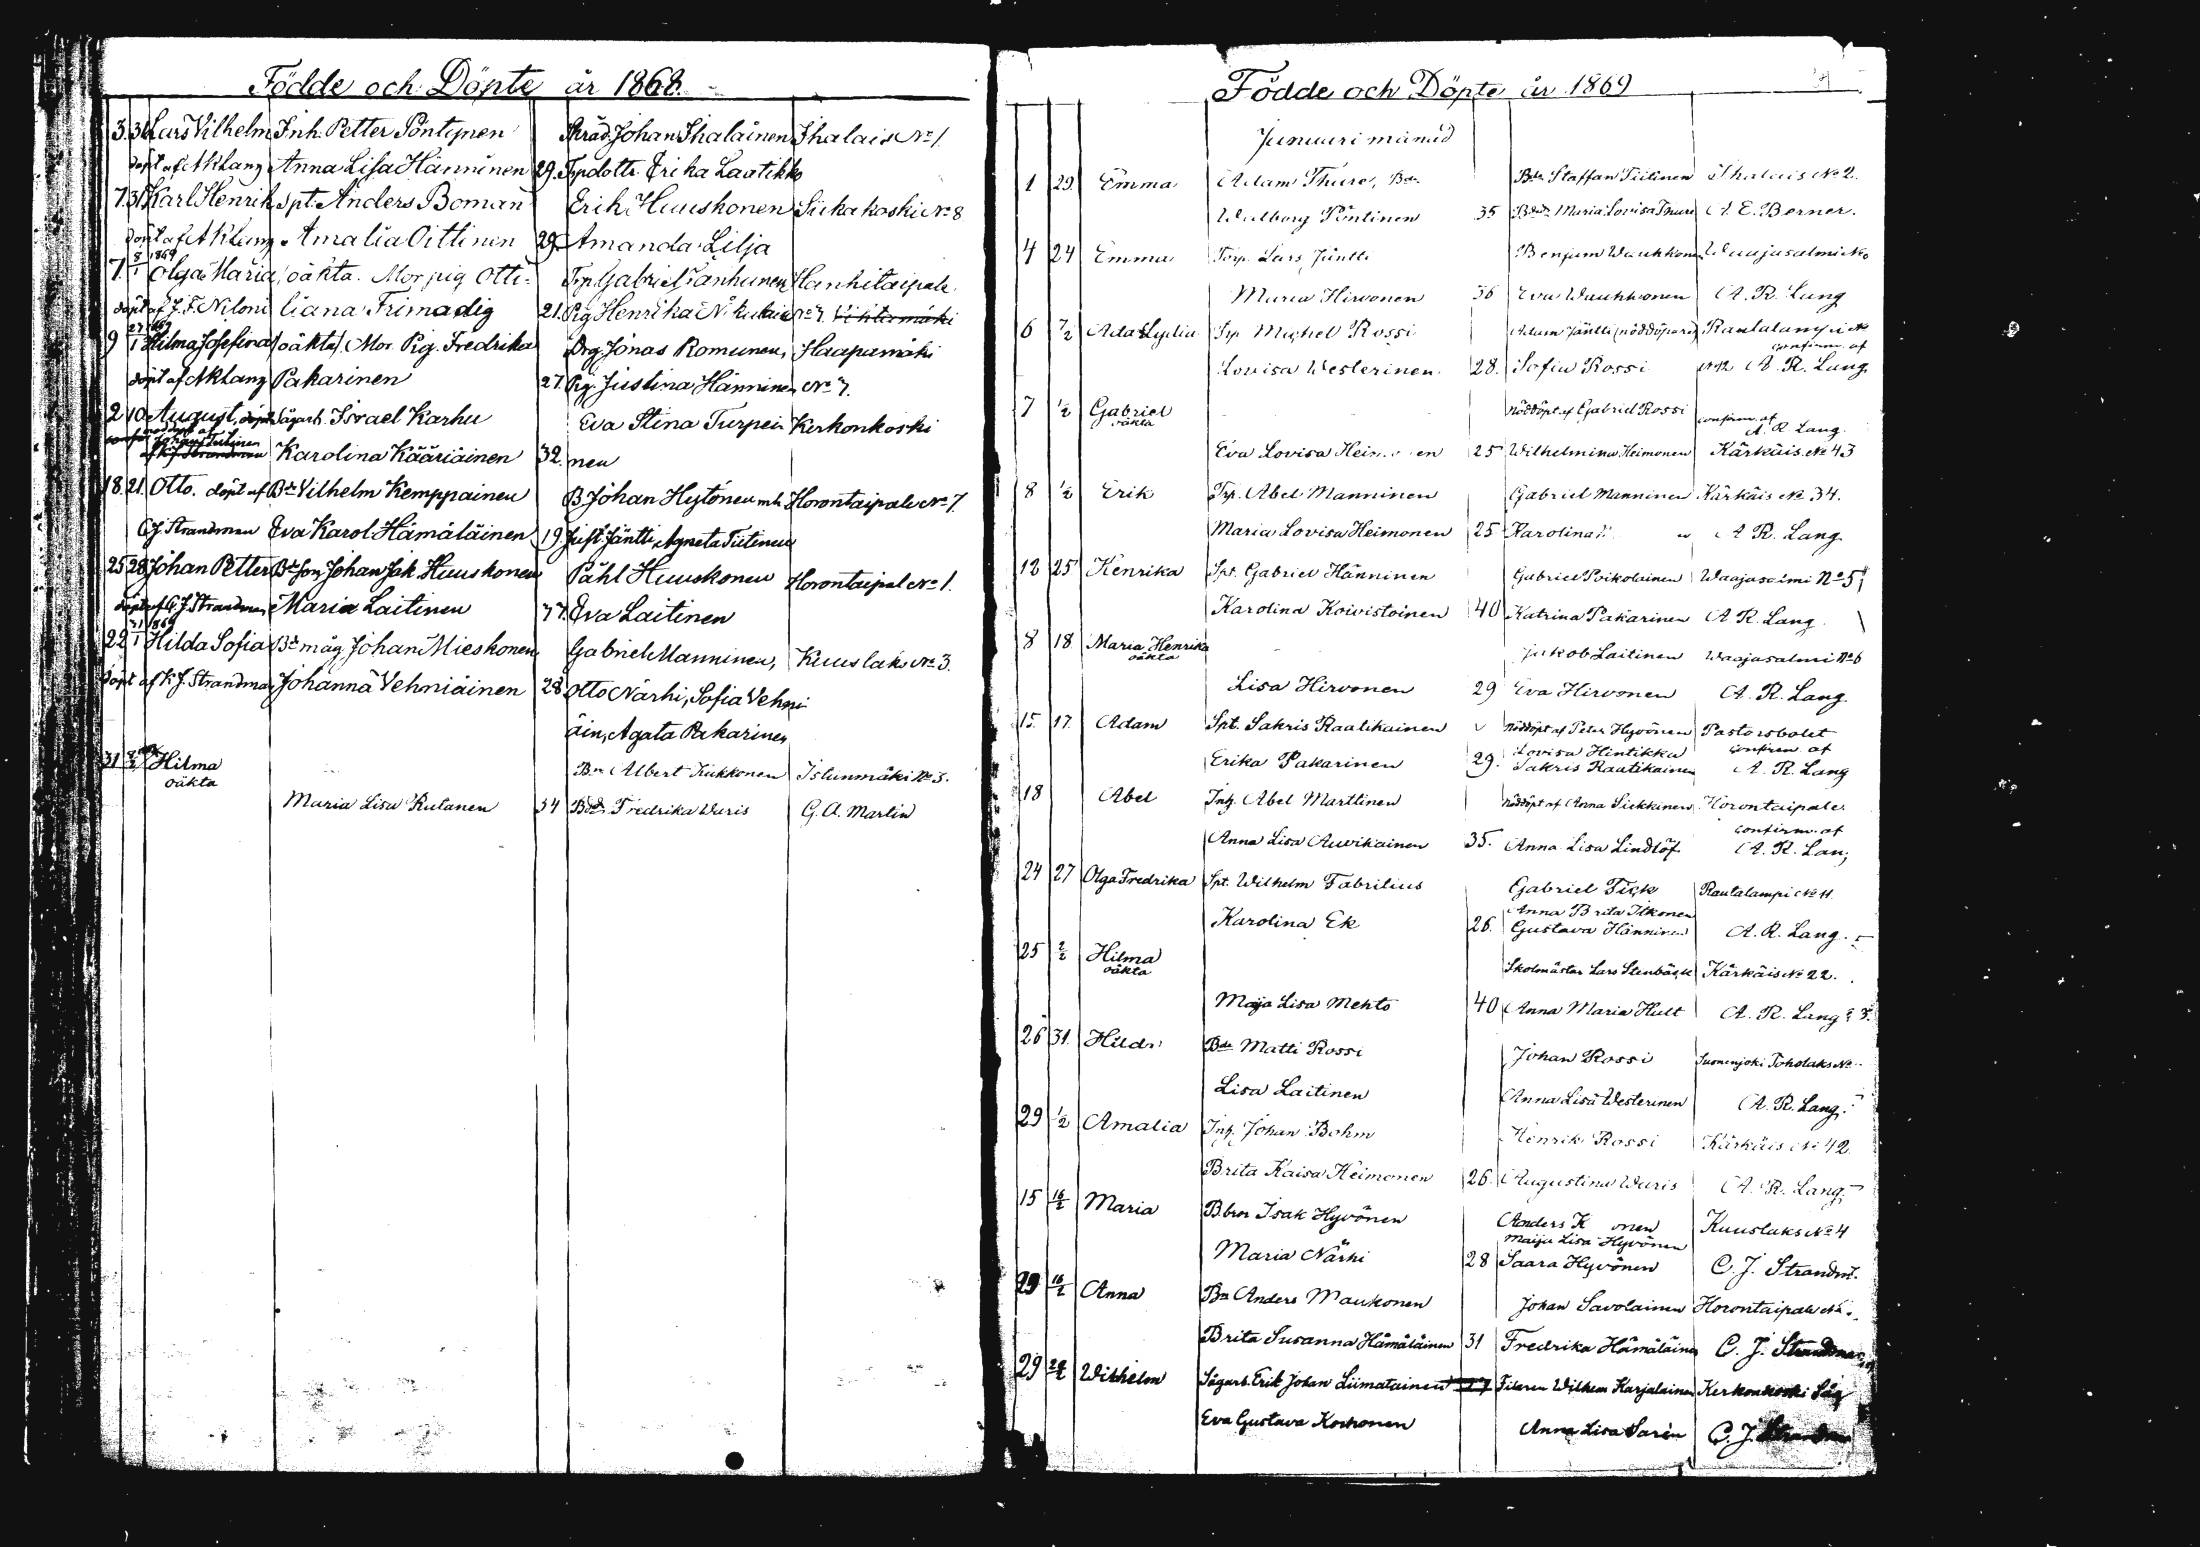 Födde och Döpte år 1868.
3. 31 Lars Vilhelm Inh. Petter Pöntynen Skräd. Johan Ihalainen Ihalais No 1.
döpt af A R Lang Anna Lisa Hänninen 29. Trpdottr Erika Laatikko
7. 31 Karl Henrik Spt. Anders Boman Erik Huuskonen Siikakoski No 8
döpt af A R Lang Amalia Oittinen 29. Amanda Lilja
7. 8/1 1869 Olga Maria oäkta. Mor pig Otti- Trp. Gabriel Hanhitaipale
döpt af J. F. liana Frimodig 21. Pig Henrika No 7.
9 27/1 1869 Hilma Josefina (oäkta) Mor. Pig. Fredrika Drg Jonas Romunen, Haapamäki
döpt af A R Lang Pakarinen 27. Pig. Justina Hänninen No 7.
2 10 August, Sågarb. Israel Karhu Eva Stina Turpei- Kerkonkoski
Karolina Kääriäinen 32. nen
18. 21. Otto. döpt af Bd Vilhelm Kemppainen B. Johan Hytönen Horontaipale No 7.
C J. Strandman Eva Karol. Hämäläinen 19. Just. Jäntti, Agneta Tiitinen
25 28 Johan Petter Bd son Johan Jak. Huuskonen Påhl Huuskonen Horontaipal No 1.
döpt af C. J. Strandman Maria Laitinen 37. Eva Laitinen
22 31/1 1869 Hilda Sofia Bd måg Johan Mieskonen Gabriel Manninen, Kuuslaks No 3.
döpt af K J. Strandman Johanna Vehniäinen 28. Otto Närhi, Sofia Vehni-
äin, Agata Pakarinen
31 Hilma Bn Albert Kukkonen Istunmäki No 3.
oäkta
Maria Lisa Rutanen 34 Fredrika Wuris G. A. Martin
Födde och Döpte år 1869
Januari månad
1 29. Emma Adam Thure, Bdn Bdn Staffan Tiitinen Ihalais No 2.
Walborg Pöntinen 35 Maria Lovisa Thure A. E. Berner.
4 24 Emma Torp. Lars Jäntti Benjam Waukhonen Waajasalmi No
Maria Hirvonen 36 Eva Waukhonen A. R. Lang
6 7/2 Ada Lydia Trp. Michel Rossi Adam Jäntti (nöddöpare) Rautalampi No
confirm. af
Lovisa Westerinen 28. Sofia Rossi A. R. Lang
7 1/2 Gabriel Nöddöpt af Gabriel Rossi confirm. af
oäkta A. R. Lang.
Eva Lovisa 25 Wilhelmina Heimonen Kärkäis No 43
8 1/2 Erik Trp. Abel Manninen Gabriel Manninen Kärkäis No 34.
Maria Lovisa Heimonen 25 Karolina A. R. Lang
12 25 Henrika Spt. Gabriel Hänninen Gabriel Poikolainen Waajasalmi No 5
Karolina Koivistoinen 40 Katrina Pakarinen A. R. Lang
8 18 Maria Henrika Jakob Laitinen Waajasalmi No 6
oäkta
Lisa Hirvonen 29 Eva Hirvonen A. R. Lang
15. 17. Adam Spt. Sakris Raatikainen Nöddöpt af Peter Hyvönen Pastorsbolet
Lovisa Hintikka confirm. af
Erika Pakarinen 29. Sakris Raatikainen A. R. Lang
18 Abel Inh. Abel Marttinen Nöddöpt af Anna Siekkinen Horontaipale
confirm. af
Anna Lisa Auvikainen 35. Anna Lisa Lindlöf A. R. Lang
24 27 Olga Fredrika Spt. Wilhelm Fabritius Gabriel Fick Rautalampi No 11.
Anna Brita Itkonen
Karolina Ek 26. Gustava Hänninen A. R. Lang.
25 2/2 Hilma Skolmästar Lars Stenbäck Kärkäis No 22.
oäkta
Maja Lisa Mehto 40 Anna Maria Hult A. R. Lang
26 31. Hilda Bdn Matti Rossi Johan Rossi Suonenjoki Toholaks No
Lisa Laitinen Anna Lisa Westerinen A. R. Lang.
29 1/2 Amalia Inh. Johan Bohm Henrik Rossi Kärkäis No 42.
Brita Kaisa Heimonen 26. Augustina Wuris A. R. Lang,
15 16/2 Maria B.bror Isak Hyvönen Anders Kuuslaks No 4
Maija Lisa Hyvönen
Maria Närhi 28 Saara Hyvönen C. J. Strandm.
29 16/2 Anna Bn Anders Maukonen Johan Savolainen Horontaipale
Brita Susanna Hämäläinen 31 Fredrika Hämäläinen C. J. Strandman
29 Wilhelm Sågarb. Erik Johan Liimatainen Filaren Wilhem Karjalainen Kerkonkoski Såg
Eva Gustava Korhonen Anna Lisa Sarén C. J. Strandman